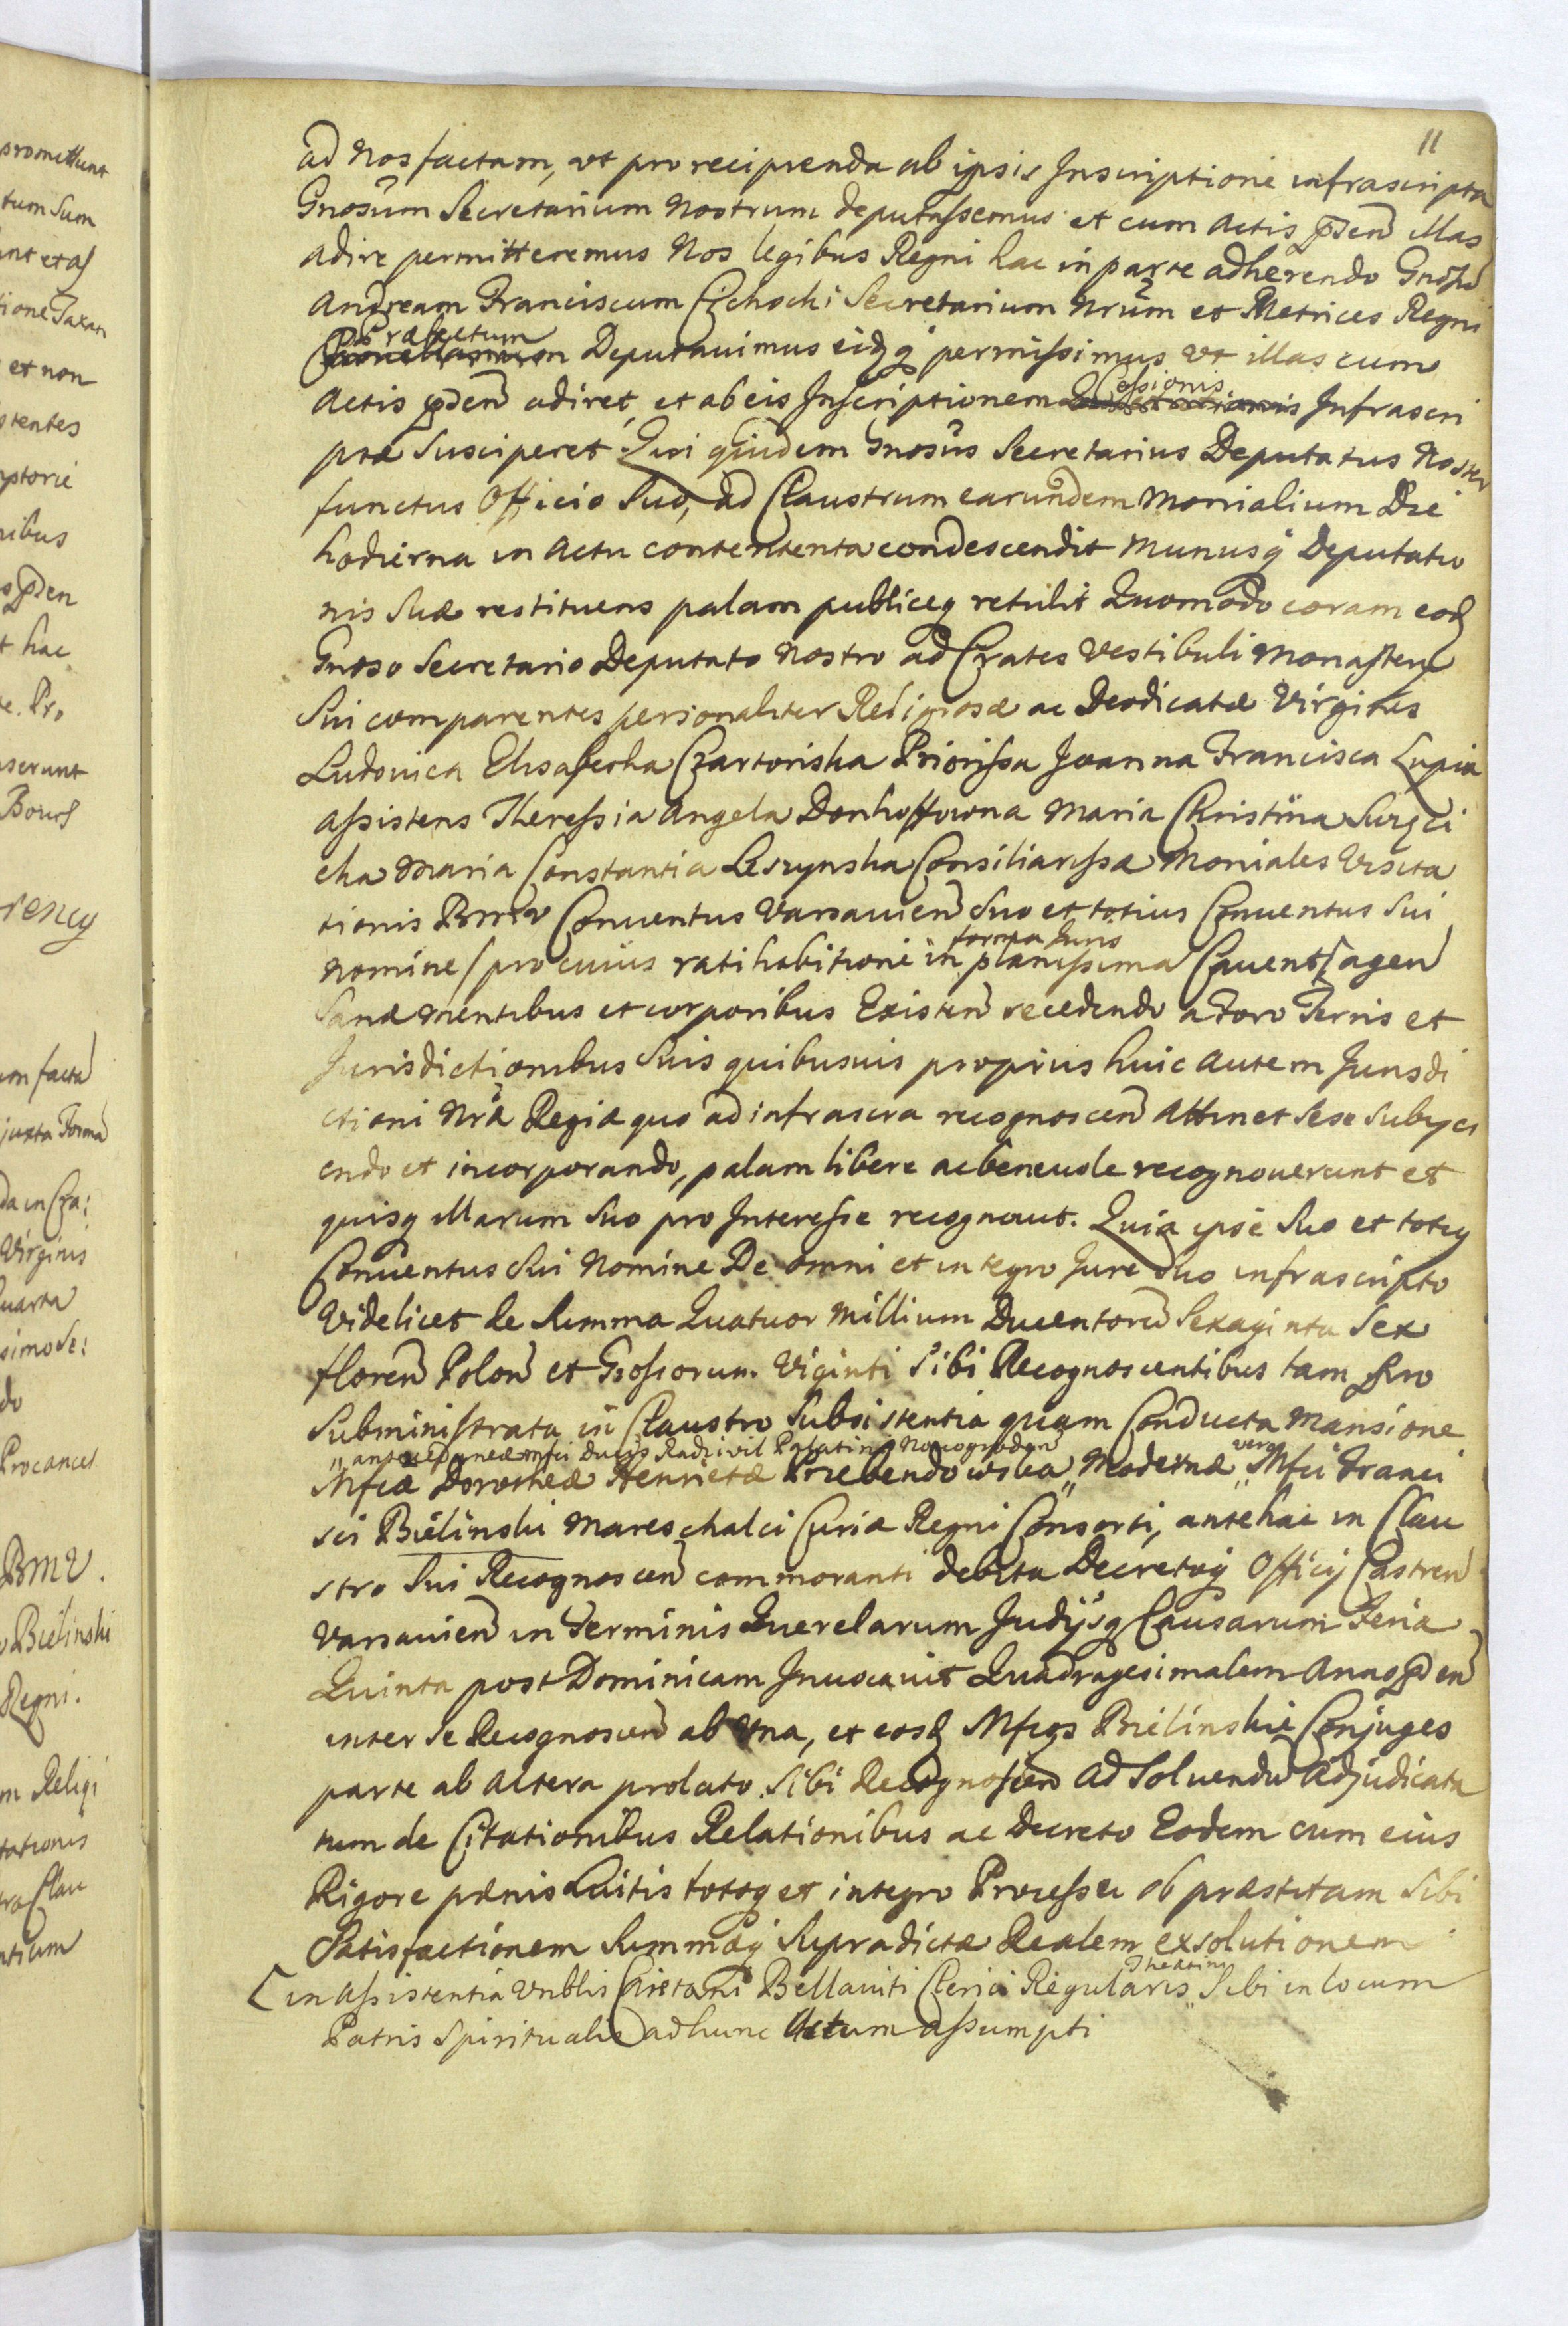 11
ad Nos factam, ut pro recipienda ab ipsis Inscriptione infrascripta
Gnosum Secretarium Nostrum deputassemus et cum Actis pñden illas
adire permitteremus Nos legibus Regni hac in parte adherendo Gnosũ
Andream Franciscum Cichocki Secretarium Nrum et Metrices Regni
Præfectum
Deputavimus eidq permissimus ut illas cum
Cessionis
Actis pñden adiret, et ab eis Inscriptionem Infrascri
ptæ susciperet Qui quidem Gnosus Secretarius Deputatus Noster
functus Officio Suo, ad Claustrum earundem Monialium Die
hodierna in Actu contententa condescendit Munusq Deputatio
nis Suæ restituens palam publiceq retulit Quomodo coram eod
Gnoso Secretario Deputato Nostro ad Crates Vestibuli Monastery
Sui comparentes personaliter Religiosæ ac Deodicatæ Virgines
Ludovica Elisabetha Czartoriska Priorissa Joanna Francisca Lupia
Assistens Theressia Angela Donhoffowna Maria Christina
cka Maria Constantia Leszynska Consiliarissæ Moniales Visita
tionis BMV Conventus Varsavien Suo et totius Conventus Sui
forma Juris
Nomine / pro cuius ratihabitione in planissima Cavent / agen
Sanæ mentibus et corporibus Existen recedendo a Foro Terris et
Jurisdictionibus Suis quibusvis proprius huic autem Jurisdi
ctioni Nræ Regiæ quo ad infrascra recognoscen attinet sese subyci
endo et incorporando, palam libere ac benevole recognoverunt et
quisq Illarum Suo pro Interesse recognovit. Quia ipse Suo et totiq
Conventus Sui Nomine De omni et integro Jure Suo infrascripto
Videlicet de Summa Quatuor Millium Ducentorũ Sexaginta Sex
floren Polon et Grossorum Viginti Sibi Recognoscentibus tam pro
Subministrata in Claustro Subsistentia quam Conducta Mansione
antea Mfci Ducis Radzivil Palatini Novogroden vero
Mfcæ Dorotheæ Henrietæ Przebendowska Modernæ Mfci Franci
sci Bielinski Mareschalci Curiæ Regni Consorti, antehac in Clau
stro Sui Recognoscen commoranti debita Decretoq Officij Castren
Varsavien in Terminis Querelarum Judijsq Causarum Feria
Quinta post Dominicam Invocavit Quadragesimalem Anno pñden
inter se Recognoscen ab Una, et eosd Mfcos Bielinskie Conjuges
parte ab Altera prolato Sibi Recognoscen ad Solvendũ Adjudicata
tum de Citationibus Relationibus ac Decreto Eodem cum eius
Rigore pænis Luitis totoq et integro Processu ob præstitam Sibi
Satisfactionem Summæq Supradictæ Realem exsolutionem
Theatini
[in Assistentia Vnblis Caietani Bellaviti Clerici Regularis Sibi in locum
Patris Spiritualis ad hunc Actum assumpti